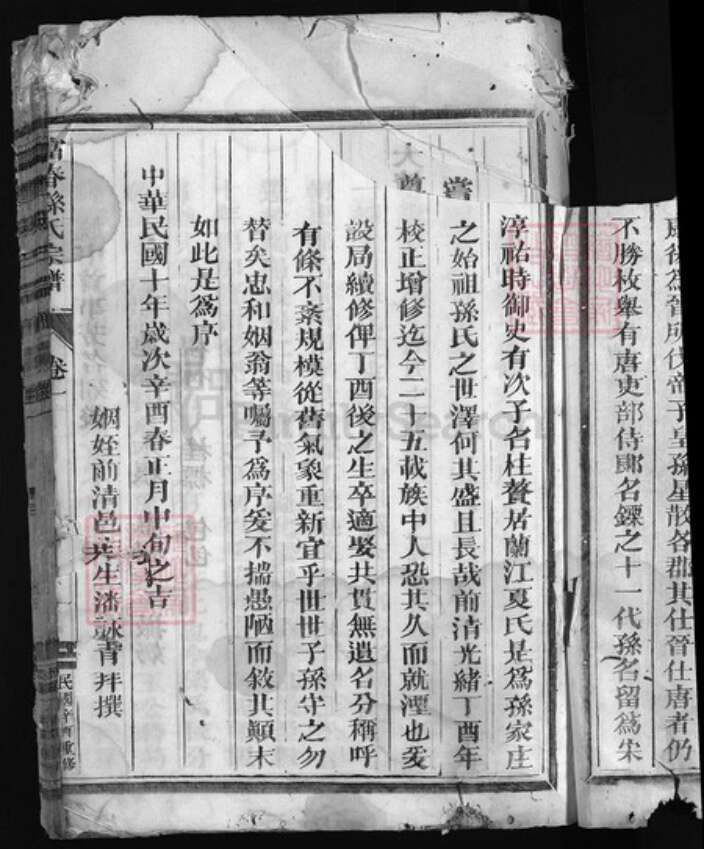 康後為晉所伐帝子皇孫星散各郡其仕晉仕唐者仍
不勝枚舉有唐吏部侍郎名鏁之十一代孫名留為宋
淳祐時御史有次子名桂贅居蘭江夏氏是為孫家庄
之始祖孫氏之世澤何其盛且長哉前清光緒丁酉年
校正增修迄今二十五載族中人恐其久而就湮也爰
設局續修俾丁酉後之生卒適娶共貫無遺名分稱呼
有條不紊規模從舊氣象重新宜乎世世子孫守之勿
替矣忠和姻翁等囑予為序爰不揣愚陋而敘其顛末
如此是為序
中華民國十年歲次辛酉春正月中旬之吉
姻姪前清邑庠生潘詠青拜撰
富春孫氏宗譜
卷一
民國辛酉重修
當
大尊
FamilySearch